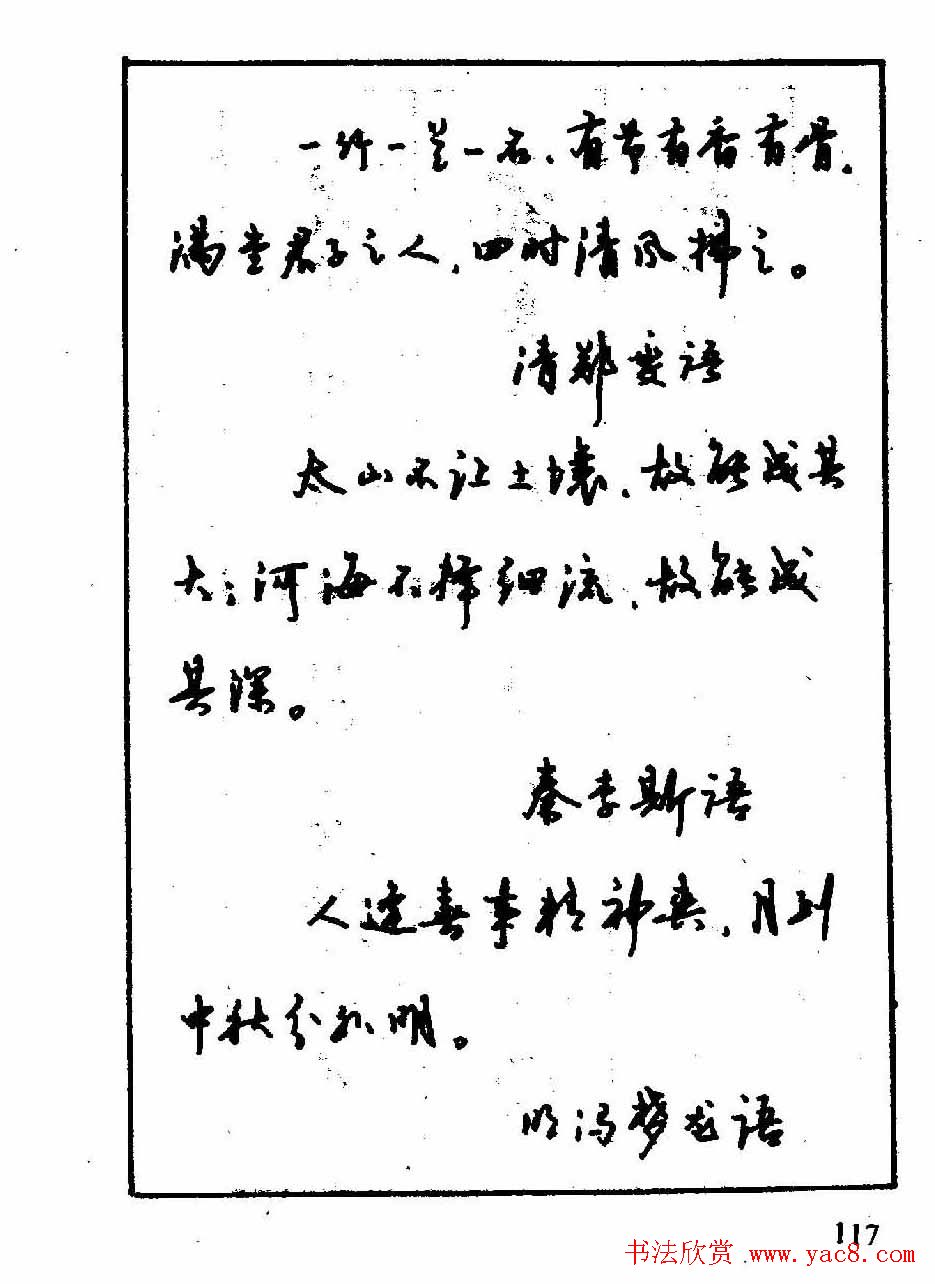 一竹一兰一石，有节有香有骨，
满堂君子之人，四时清风拂之。
清郑燮语
太山不让土壤，故能成其
大；河海不择细流，故能成
其深。
秦李斯语
人逢喜事精神爽，月到
中秋分外明。
明冯梦龙语
117
书法欣赏 www.yac8.com